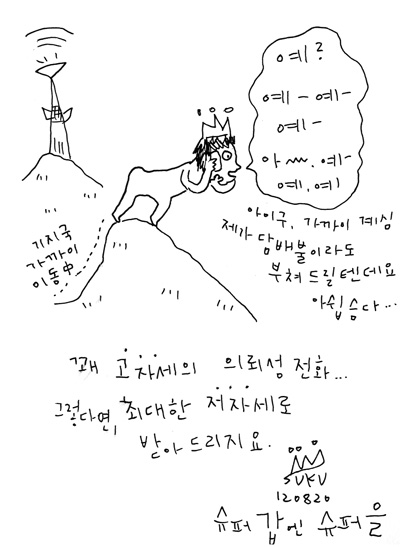 예?
예 - 예 -
예 -
아 ~~. 예 -
예. 예
아이구, 가까이 계심
제가 담배불이라도
부쳐 드릴텐데요
아쉽습다...
기지국
가까이
이동中
꽤 고자세의 의뢰성 전화...
그렇다면, 최대한 저자세로
받아 드리지요.
SUKU
120820
슈퍼 갑엔 슈퍼 을